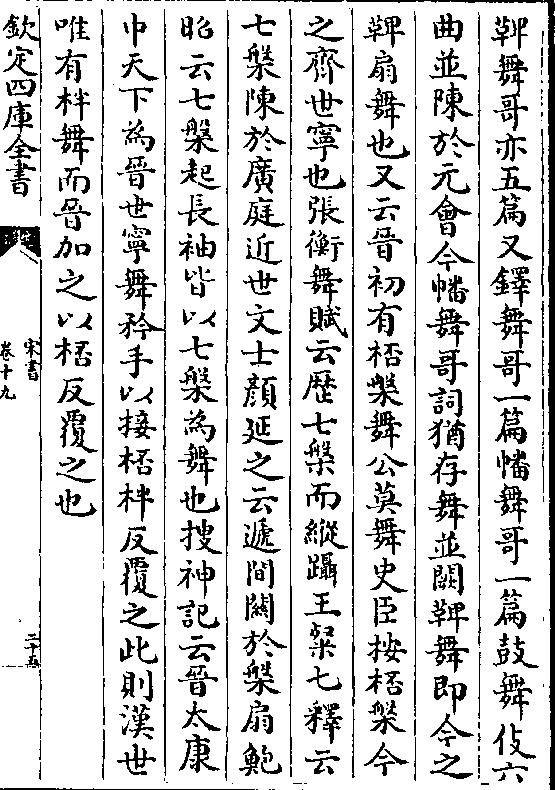 鞞舞哥亦五篇又鐸舞哥一篇幡舞哥一篇鼓舞伎六
曲並陳於元會今幡舞哥詞猶存舞並闕鞞舞即今之
鞞扇舞也又云晉初有桮槃舞公莫舞史臣按桮槃今
之齊世寧也張衡舞賦云歴七槃而縱躡王粲七釋云
七槃陳於廣庭近世文士顔延之云遞間關於槃扇鮑
昭云七槃起長袖皆以七槃為舞也搜神記云晉太康
中天下為晉世寧舞矜手以接桮柈反覆之此則漢世
唯有柈舞而晉加之以桮反覆之也
欽定四庫全書
宋書
卷十九
二十五